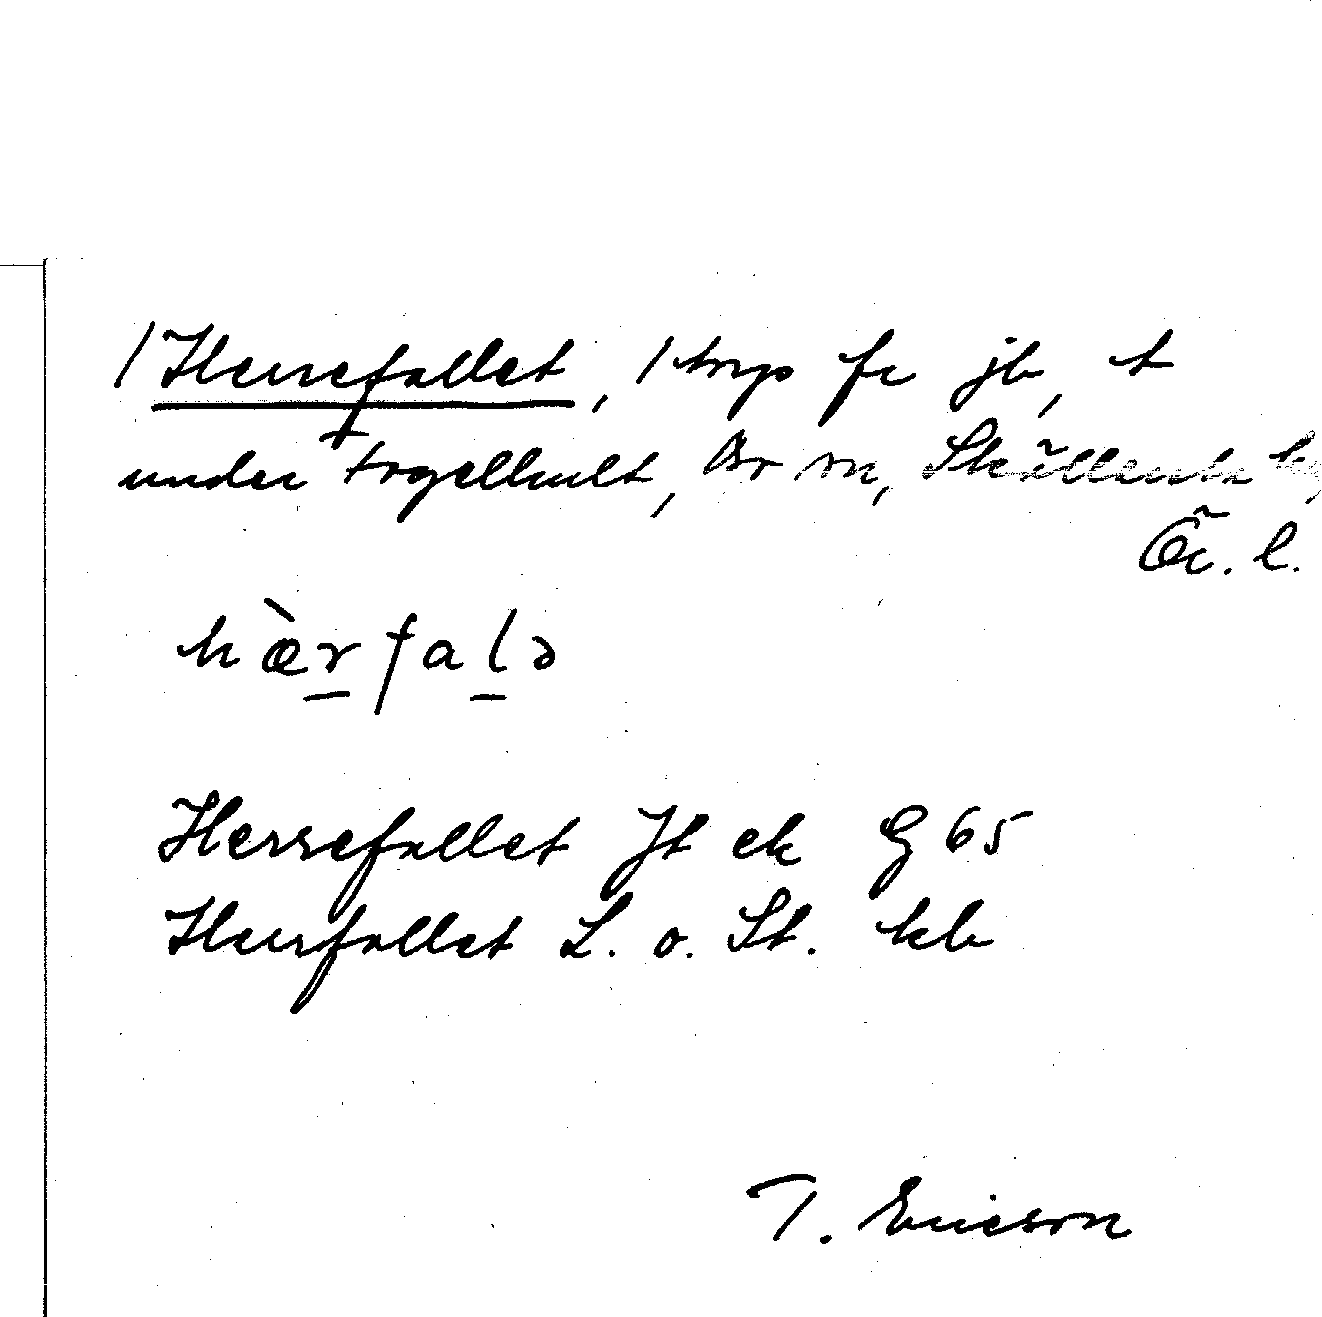 / Herrefallet, 1 torp fr jb, t
under Fogelhult, Br sn, Sköllersta hd,
Ör. l.
hæ̀rfalə
Herrefallet Jt ek G 65
Herrfallet L. o. St. kb
T. Ericson